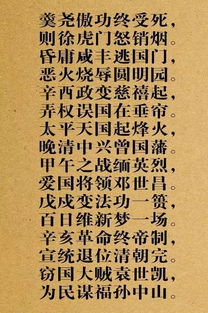 羹尧傲功终受死，
则徐虎门怒销烟。
昏庸咸丰逃国门，
恶火烧辱圆明园。
辛酉政变慈禧起，
弄权误国在垂帘。
太平天国起烽火，
晚清中兴曾国藩。
甲午之战缅英烈，
爱国将领邓世昌。
戊戌变法功一篑，
百日维新梦一场。
辛亥革命终帝制，
宣统退位清朝完。
窃国大贼袁世凯，
为民谋福孙中山。